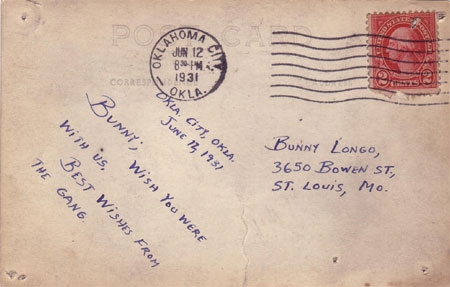 POST CARD
OKLAHOMA CITY
JUN 12
8 30 PM
1931
OKLA.
UNITED STATES POSTAGE
2 CENTS 2
OKLA CITY, OKLA.
JUNE 12, 1931
BUNNY,
WISH YOU WERE
WITH US,
BEST WISHES FROM
THE GANG
BUNNY LONGO,
3650 BOWEN ST.,
ST. LOUIS, MO.